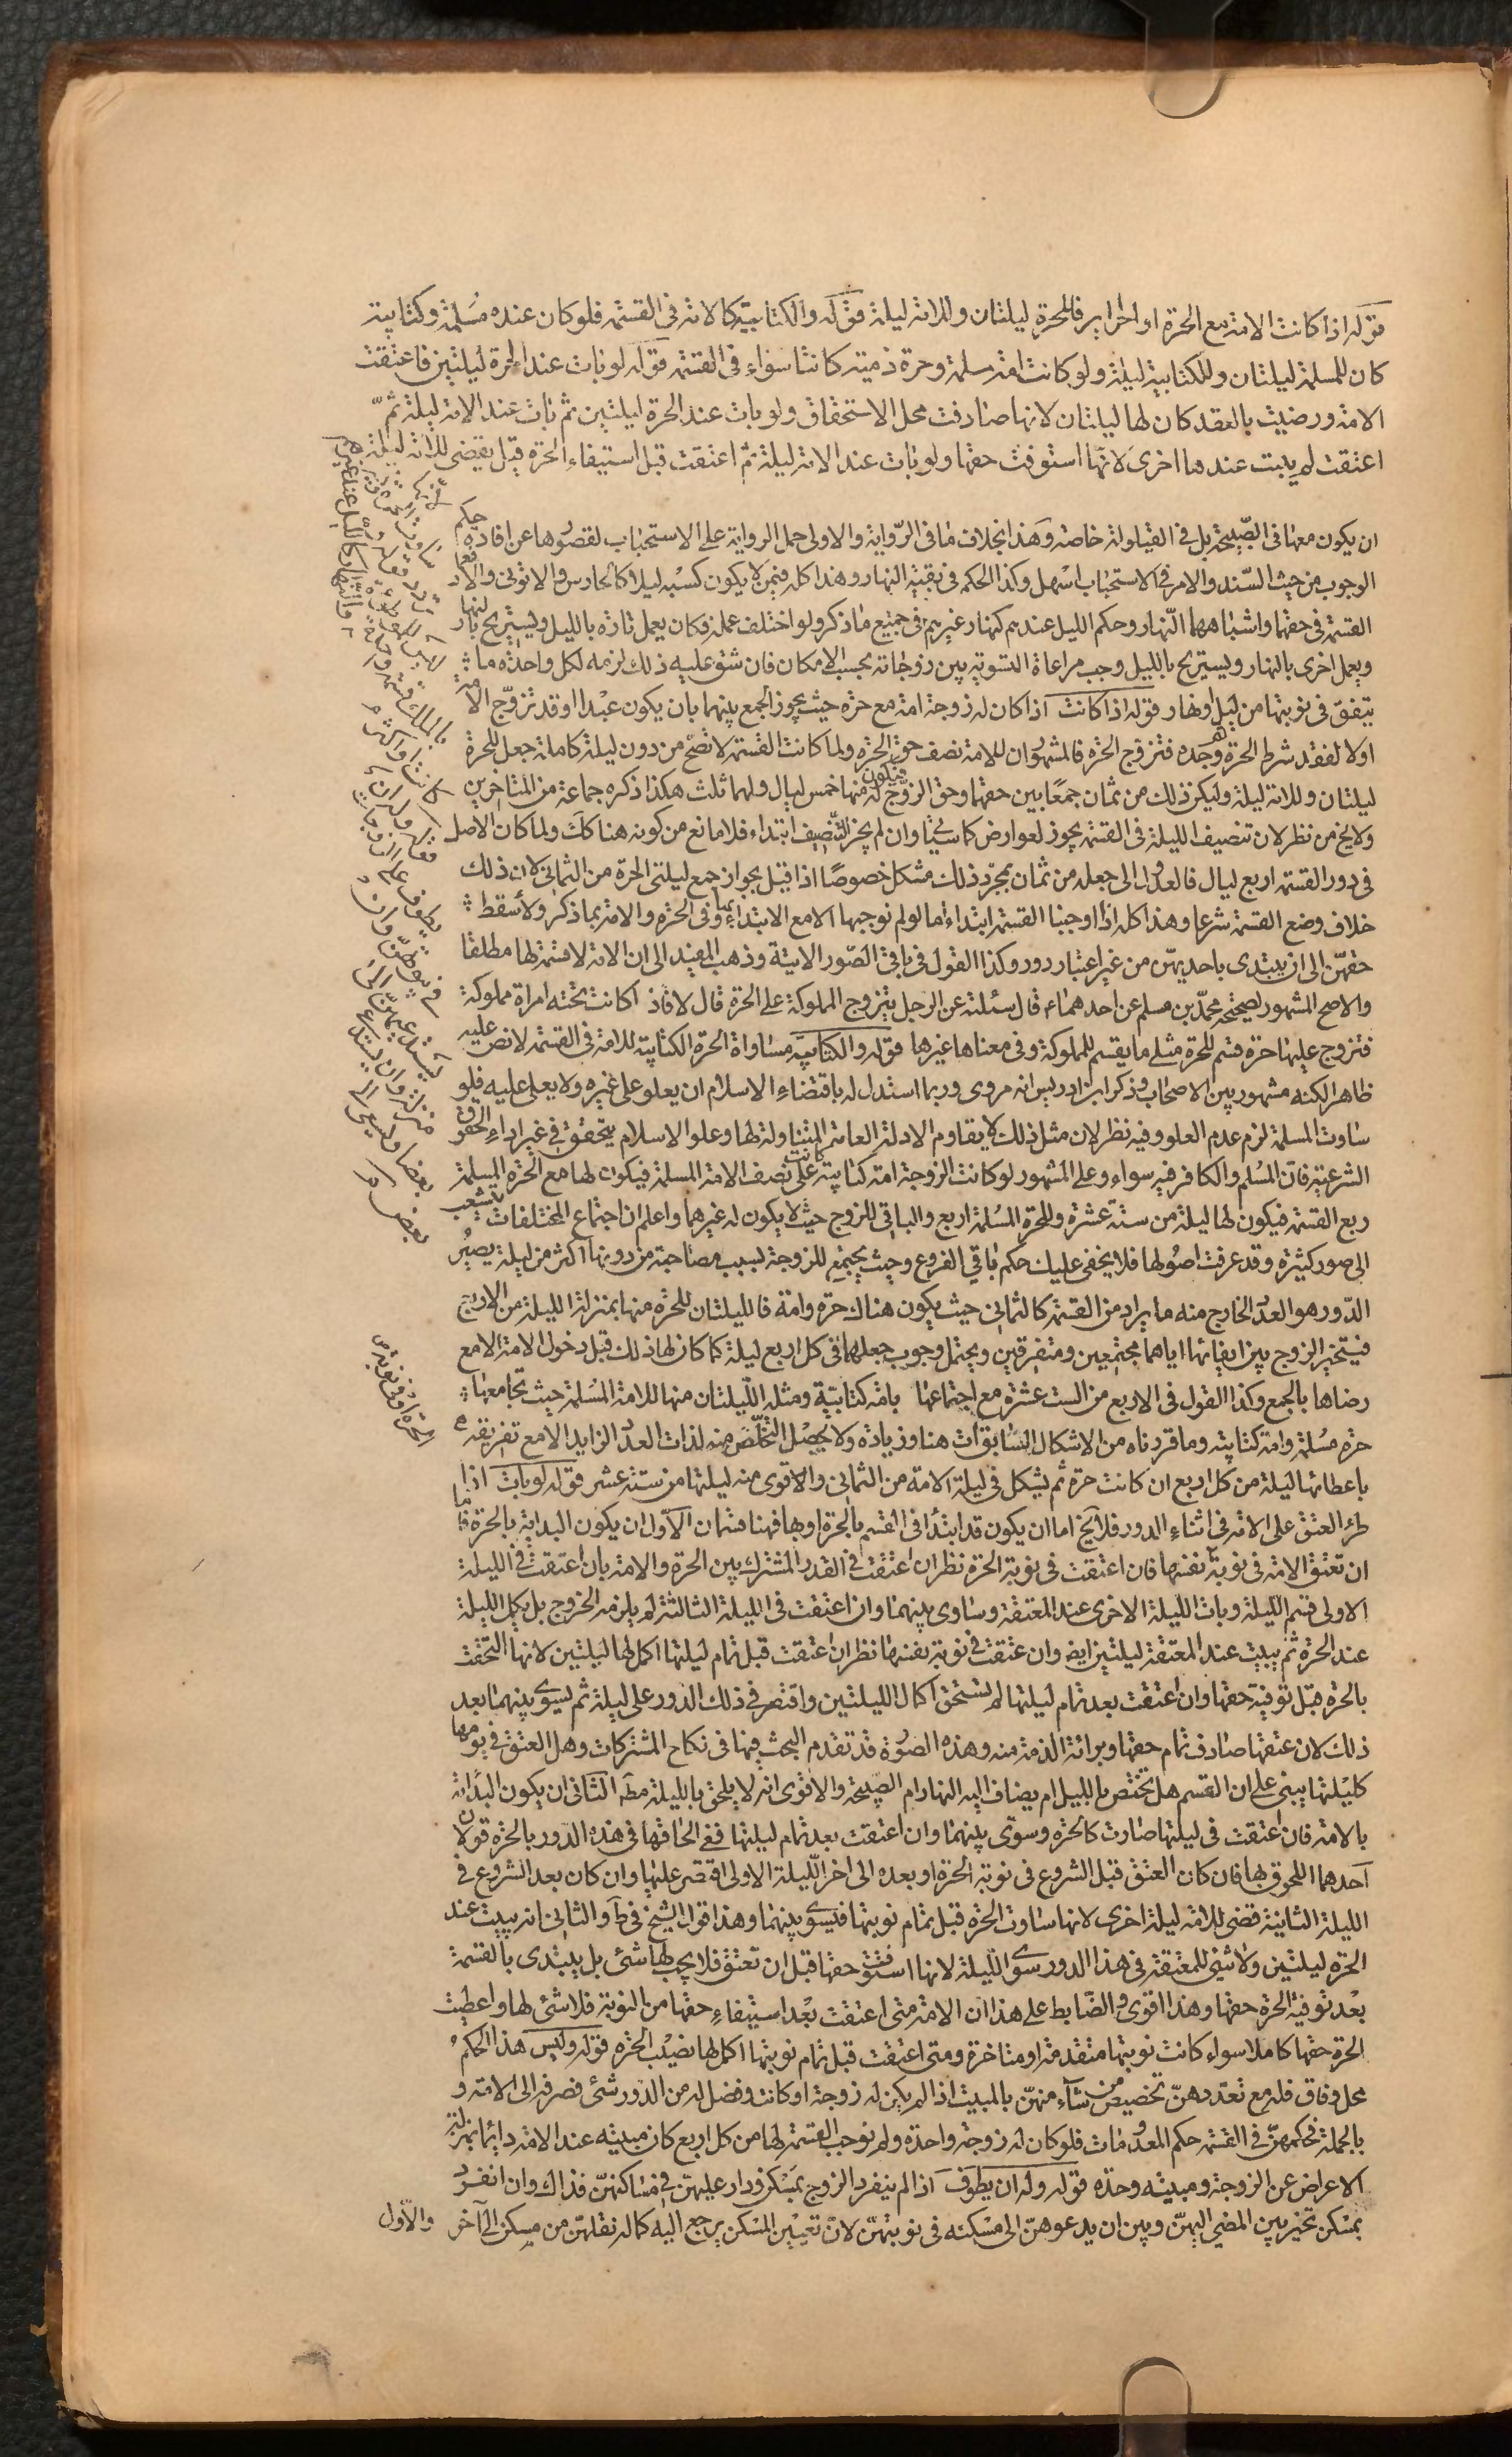 قوله اذا كانت الامة مع الحرة او الحراير فللحرة ليلتان وللامة ليلة قوله والكتابية كالامة في القسمة فلو كان عنده مسلمة وكتابية
كان للمسلمة ليلتان وللكتابية ليلة ولو كانت امة مسلمة وحرة ذمية كانتا سواء في القسمة قوله لو بات عند الحرة ليلتين فاعتقت
الامة ورضيت بالعقد كان لها ليلتان لانها صادفت محل الاستحقاق ولو بات عند الحرة ليلتين ثم بات عند الامة ليلة ثم
اعتقت لم يبت عندها اخرى لانها استوفت حقها ولو بات عند الامة ليلة ثم اعتقت قبل استيفاء الحرة قيل يقضى للامة ليلة
ان يكون معها في الصبيحة بل في القيلولة خاصة وهذا بخلاف ما في الرواية والاولى حمل الرواية على الاستحباب لقصورها عن افادة حكم
الوجوب من حيث السند والامر في الاستحباب اسهل وكذا الحكم في بقية النهار وهذا كله فيمن لا يكون كسبه ليلا كالحارس والاتوني والا فعماد
القسمة في حقها واشباههما النهار وحكم الليل عندهم كنهار غيرهم في جميع ما ذكر ولو اختلف عمله فكان يعمل تارة بالليل ويستريح بالنهار
ويعمل اخرى بالنهار ويستريح بالليل وجب مراعاة التسوية بين زوجاته بحسب الامكان فان شق عليه ذلك لزمه لكل واحدة ما
يتفق في نوبتها من ليل او نهار قوله اذا كانت اذا كان له زوجة امة مع حرة حيث يجوز الجمع بينهما بان يكون عبدا او قد تزوج الامة
اولا لفقد شرط الحرة ثم وجده فتزوج الحرة فالمشهور ان للامة نصف حق الحرة ولما كانت القسمة لا تصح من دون ليلة كاملة جعل للحرة
ليلتان وللامة ليلة وليكن ذلك من ثمان جمعا بين حقهما وحق الزوج فيكون له منها خمس ليال ولهما ثلث هكذا ذكره جماعة من المتأخرين
ولا يخ من نظر لان تنصيف الليلة في القسمة يجوز لعوارض كما سيجيء وان لم يجز التنصيف ابتداء فلا مانع من كونه هنا كك ولما كان الاصل
في دور القسمة اربع ليال فالعدول الى جعله من ثمان بمجرد ذلك مشكل خصوصا اذا قيل بجواز جمع ليلتي الحرة من الثماني لان ذلك
خلاف وضع القسمة شرعا وهذا كله اذا اوجبنا القسمة ابتداء اما لو لم نوجبها الا مع الابتداء بها وفي الحرة والامة بما ذكر ولا سقط
حقهن الى ان يبتدى باحديهن من غير اعتبار دور وكذا القول في باقي الصور الاتية وذهب المفيد الى ان الامة لا قسمة لها مطلقا
والاصح المشهور لصحيحة محمد بن مسلم عن احدهما ع قال سئلته عن الرجل يتزوج المملوكة على الحرة قال لا فاذا كانت تحته امراة مملوكة
فتزوج عليها حرة قسم للحرة مثلي ما يقسم للمملوكة وفي معناها غيرها قوله والكتابية مساواة الحرة الكتابية للامة في القسمة لا نص عليه
ظاهرا لكنه مشهور بين الاصحاب وذكر ابن ادريس انه مروى وربما استدل له باقتضاء الاسلام ان يعلو على غيره ولا يعلى عليه فلو
ساوت المسلمة لزم عدم العلو وفيه نظر لان مثل ذلك لا يقاوم الادلة العامة المتناولة لها وعلو الاسلام يتحقق في غير اداء الحقوق
الشرعية فان المسلم والكافر فيه سواء وعلى المشهور لو كانت الزوجة امة كتابية كانت على نصف الامة المسلمة فيكون لها مع الحرة المسلمة
ربع القسمة فيكون لها ليلة من ستة عشرة وللحرة المسلمة اربع والباقي للزوج حيث لا يكون له غيرهما واعلم ان اجتماع المختلفات يتشعب
الى صور كثيرة وقد عرفت اصولها فلا يخفى عليك حكم باقي الفروع وحيث يجتمع للزوجة بسبب مصاحبة من دونها اكثر من ليلة يصير
الدور هو العدد الخارج منه ما يراد من القسمة كالثماني حيث يكون هناك حرة وامة فالليلتان للحرة منها بمنزلة الليلة من الاربع
فيتخير الزوج بين ايفائها اياهما مجتمعين ومتفرقين ويحتمل وجوب جعلهما في كل اربع ليلة كما كان لها ذلك قبل دخول الامة الا مع
رضاها بالجمع وكذا القول في الاربع من الست عشرة مع اجتماعها بامة كتابية ومثله الليلتان منها للامة المسلمة حيث تجامعها
حرة مسلمة وامة كتابية وما قررناه من الاشكال السابق ات هنا وزيادة ولا يحصل التخلص منه لذات العدد الزايد الا مع تفريقه
باعطائها ليلة من كل اربع ان كانت حرة ثم يشكل في ليلة الامة من الثماني والاقوى منه ليلتها من ستة عشر قوله لو بات اذا
طرء العتق على الامة في اثناء الدور فلا يخ اما ان يكون قد ابتدأ في القسم بالحرة او بها فهنا قسمان الاول ان يكون البداية بالحرة فاما
ان تعتق الامة في نوبة نفسها فان اعتقت في نوبة الحرة نظر ان اعتقت في القدر المشترك بين الحرة والامة بان اعتقت في الليلة
الاولى قسم الليلة وبات الليلة الاخرى عند المعتقة وساوى بينهما وان اعتقت في الليلة الثالثة لم يلزمه الخروج بل يكمل الليلة
عند الحرة ثم يبيت عند المعتقة ليلتين ايض وان عتقت في نوبة نفسها نظر ان اعتقت قبل تمام ليلتها اكمل لها ليلتين لانها التحقت
بالحرة قبل توفية حقها وان اعتقت بعد تمام ليلتها لم تستحق اكمال الليلتين واقتصر في ذلك الدور على ليلة ثم يسوى بينهما بعد
ذلك لان عتقها صادف تمام حقها وبرائة الذمة منه وهذه الصورة قد تقدم البحث فيها في نكاح المشركات وهل العتق في يومها
كليلتها يبنى على ان القسم هل يختص بالليل ام يضاف اليه النهار ام الصبيحة والاقوى انه لا يلحق بالليلة مط الثاني ان يكون البدائة
بالامة فان اعتقت في ليلتها صارت كالحرة وسوى بينهما وان اعتقت بعد تمام ليلتها ففي الحاقها في هذه الدور بالحرة قولان
احدهما اللحوق بها فان كان العتق قبل الشروع في نوبة الحرة او بعده الى اخر الليلة الاولى اقتصر عليها وان كان بعد الشروع في
الليلة الثانية قضى للامة ليلة اخرى لانها ساوت الحرة قبل تمام نوبتها فيسوى بينهما وهذا قول الشيخ في ط والثاني انه يبيت عند
الحرة ليلتين ولا شيء للمعتقة في هذا الدور سوى الليلة لانها استوفت حقها قبل ان تعتق فلا يجب لها شئ بل يبتدى بالقسمة
بعد توفية الحرة حقها وهذا اقوى والضابط على هذا ان الامة متى اعتقت بعد استيفاء حقها من النوبة فلا شئ لها واعطيت
الحرة حقها كاملا سواء كانت نوبتها متقدمة او متاخرة ومتى اعتقت قبل تمام نوبتها اكمل لها نصيب الحرة قوله وليس هذا الحكم
محل وفاق فله مع تعددهن تخصيص من شاء منهن بالمبيت اذا لم يكن له زوجة او كانت وفضل له من الدور شئ فصرفه الى الامة و
بالجملة فحكمهن في القسمة حكم المعدومات فلو كان له زوجة واحدة ولم نوجب القسمة لها من كل اربع كان مبيته عند الامة دائما بمنزلة
الاعراض عن الزوجة ومبيته وحده قوله وله ان يطوف اذا لم ينفرد الزوج بمسكن ودار عليهن في مساكنهن فذاك وان انفرد
بمسكن تخير بين المضي اليهن وبين ان يدعوهن الى مسكنه في نوبتهن لان تعيين المسكن يرجع اليه كما له نقلهن من مسكن الى آخر
والاول